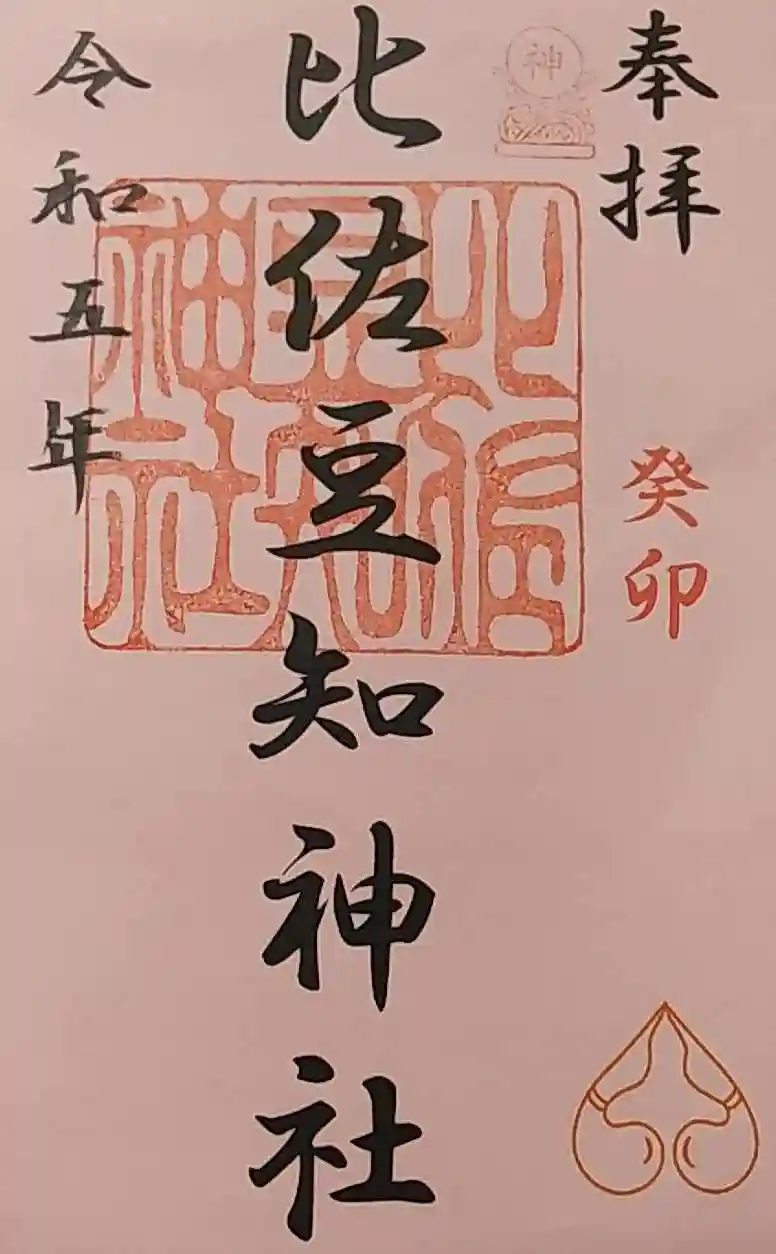 奉拝
癸卯
神
比佐豆知神社
比佐豆知神社
令和五年